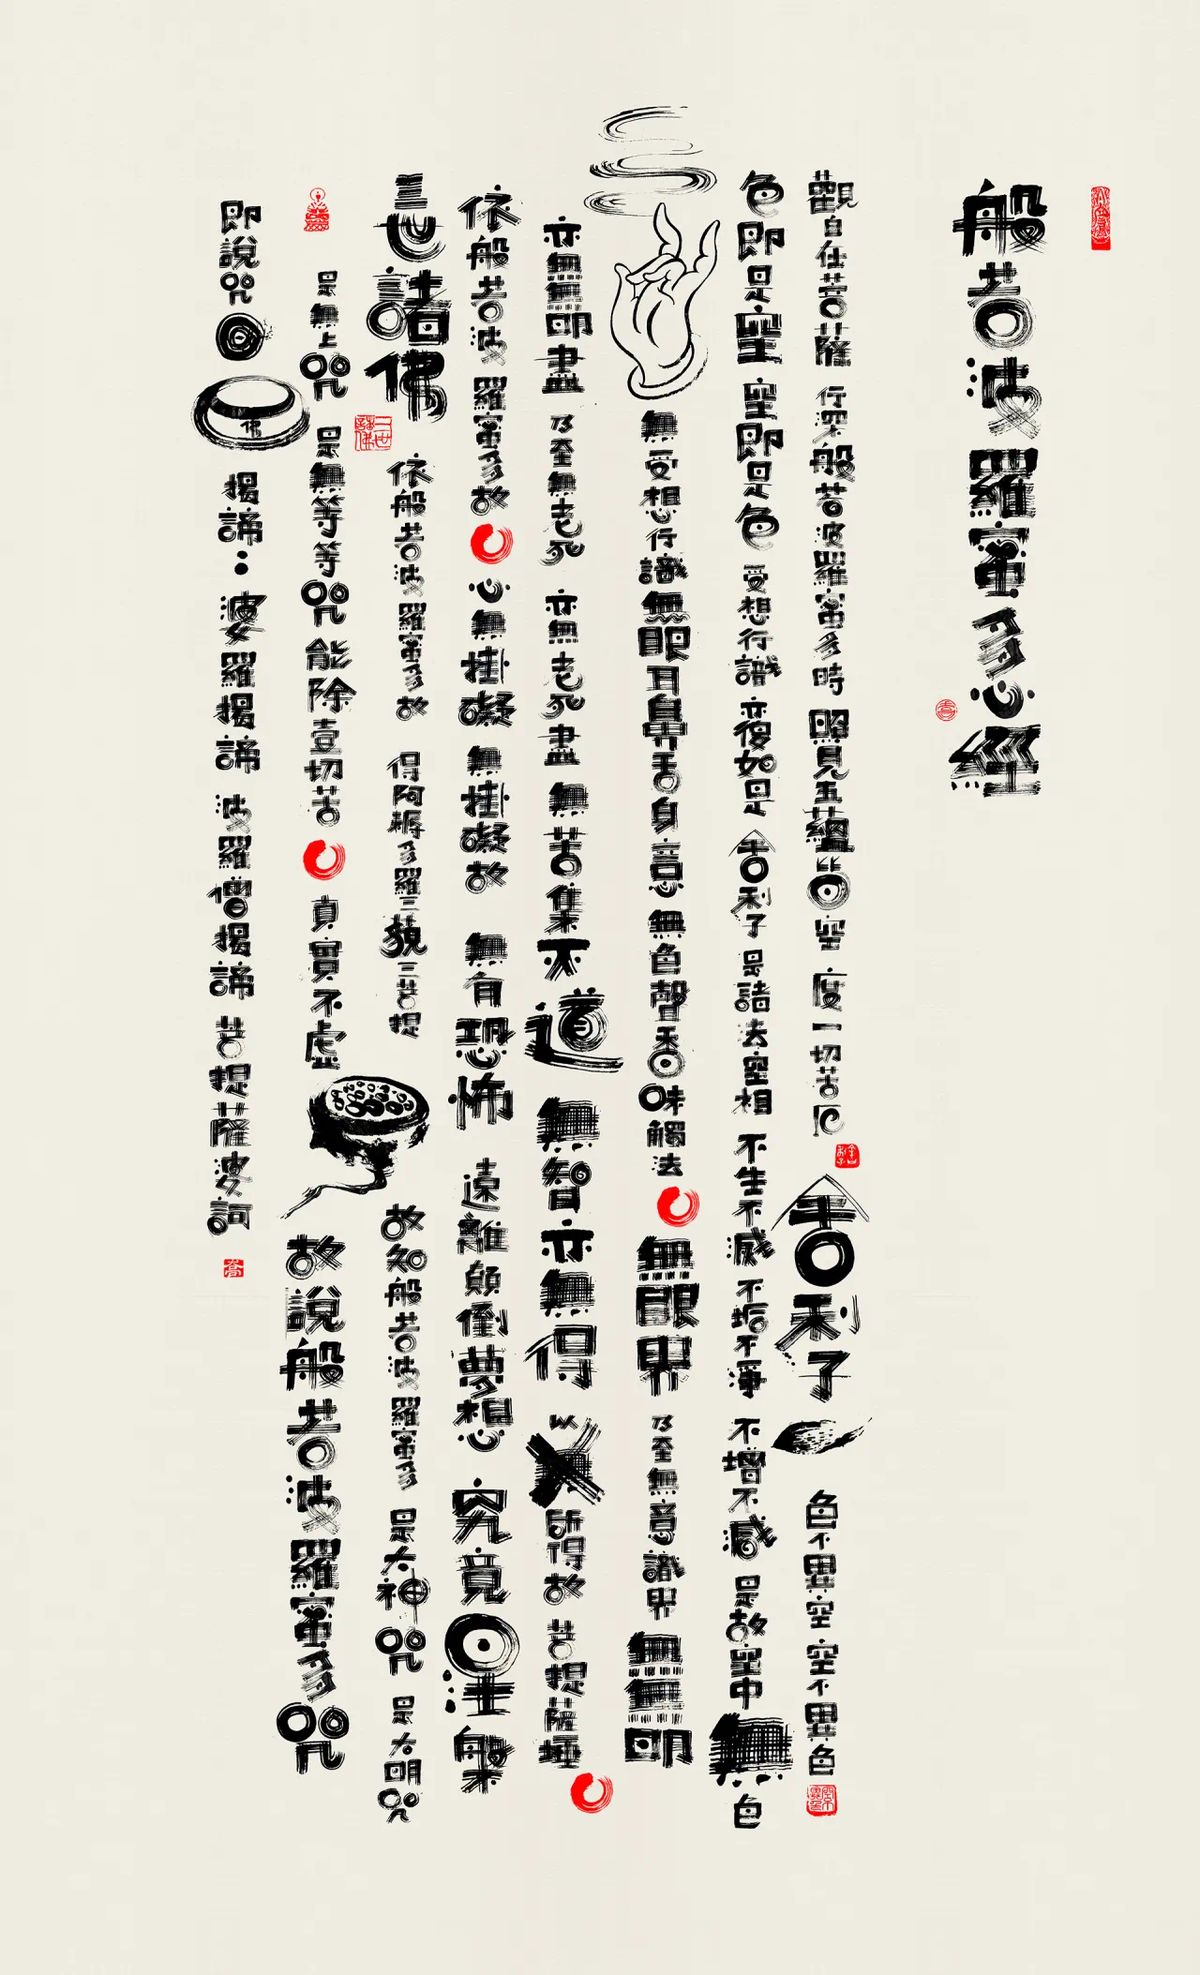 般若波羅蜜多心經
觀自在菩薩 行深般若波羅蜜多時 照見五蘊皆空 度一切苦厄 舍利子 色不異空 空不異色
色即是空 空即是色 受想行識 亦復如是 舍利子 是諸法空相 不生不滅 不垢不淨 不增不減 是故空中無色
無受想行識 無眼耳鼻舌身意 無色聲香味觸法 無眼界 乃至無意識界 無無明
亦無無明盡 乃至無老死 亦無老死盡 無苦集灭道 無智亦無得 以無所得故 菩提薩埵
依般若波羅蜜多故 心無掛礙 無掛礙故 無有恐怖 遠離顛倒夢想 究竟涅槃
三世諸佛 依般若波羅蜜多故 得阿耨多羅三藐三菩提 故知般若波羅蜜多 是大神咒 是大明咒
三世諸佛
是無上咒 是無等等咒 能除壹切苦 真實不虛 故說般若波羅蜜多咒
即說咒曰 佛 揭諦： 婆羅揭諦 波羅僧揭諦 菩提薩婆訶